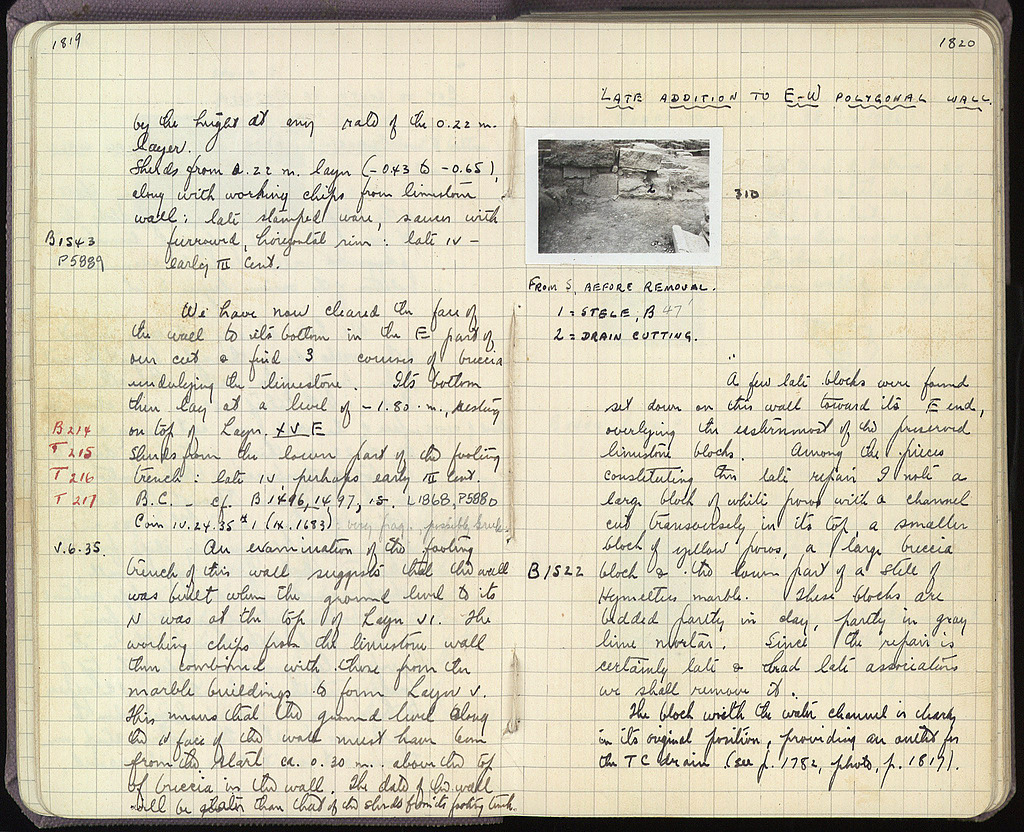 1819
by the height at any rate of the 0.22 m.
layer.
Sherds from 0.22 m. layer (-0.43 to -0.65),
along with working chips from limestone
wall: late stamped ware, saucer with
B1543
furrowed, horizontal rim: late IV -
P5889
early III Cent.
We have now cleared the face of
the wall to its bottom in the E part of
our cut & find 3 courses of breccia
underlying the limestone. Its bottom
then lay at a level of -1.80 m., resting
on top of Layer XV E
B214
T215
T216
T217
Sherds from the lower part of the footing
trench: late IV, perhaps early III Cent
B.C. - cf. B1496, 1497, 15. L1868, P5880
Coin IV.24.35 #1 (p. 1683): very frag. possibly Greek.
V.6.35.
An examination of the footing
trench of this wall suggests that the wall
was built when the ground level to its
N was at the top of Layer VI. The
working chips from the limestone wall
then combined with those from the
marble buildings to form Layer V.
This means that the ground level along
the N face of the wall must have been
from the start ca. 0.30 m. above the top
of breccia in the wall. The date of the wall
will be later than that of the sherds from its footing trench.
1820
LATE ADDITION TO E-W POLYGONAL WALL.
310
FROM S, BEFORE REMOVAL.
1 = STELE, B 47
2 = DRAIN CUTTING.
A few late blocks were found
set down on this wall toward its E end,
overlying the easternmost of the preserved
limestone blocks. Among the pieces
constituting this late repair I note a
large block of white poros with a channel
cut transversely in its top, a smaller
block of yellow poros, a large breccia
B1522
block & the lower part of a stele of
Hymettus marble. These blocks are
bedded partly in clay, partly in gray
lime mortar. Since the repair is
certainly late & had late associations
we shall remove it.
The block with the water channel is clearly
in its original position, providing an outlet for
the TC drain (see p. 1782, photo, p. 1817).